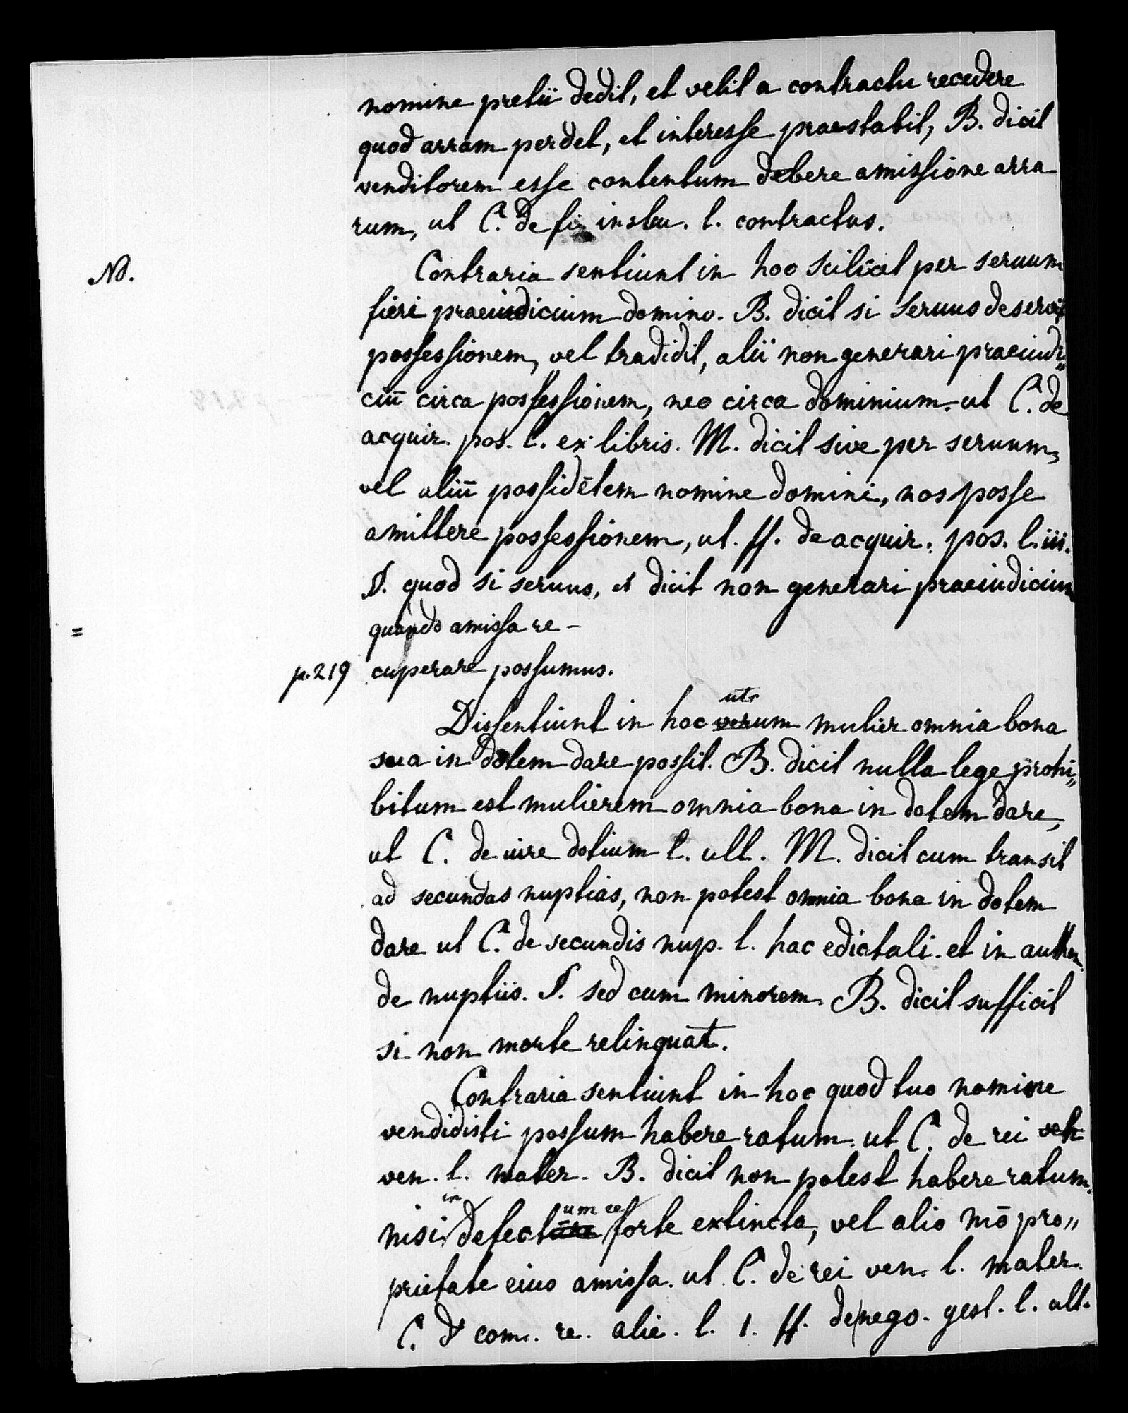 nomine pretii dedit, et velit a contractu recedere
quod arram perdet, et interesse praestabit, B. dicit
venditorem esse contentum debere amissione arra
rum, ut C. de fi. instru. l. contractus.
Nd.
Contraria sentiunt in hoc scilicet per seruum
fieri praeiudicium domino. B. dicit si seruus deserue
possessionem, vel tradidit, alii non generari praeiudi„
ciū circa possessionem, nec circa dominium. ut C. de
acquir. pos. l. ex libris. M. dicit sive per seruum,
vel aliū possidētem nomine domini, nos posse
amittere possessionem, ut. ff. de acquir. pos. l. iii.
§. quod si seruus, et dicit non generari praeiudicium
quando amissa re-
=
p. 219 cuperare possumus.
Dissentiunt in hoc utrum mulier omnia bona
sua in dotem dare possit. B. dicit nulla lege prohi„
bitum est mulierem omnia bona in dotem dare,
ut C. de iure dotium l. ult. M. dicit cum transit
ad secundas nuptias, non potest omnia bona in dotem
dare ut C. de secundis nup. l. hac edictali. et in authen.
de nuptiis. §. sed cum minorem B. dicit sufficit
si non morte relinquat.
Contraria sentiunt in hoc quod tuo nomine
vendidisti possum habere ratum. ut C. de rei veh
ven. l. mater. B. dicit non potest habere ratum.
nisi in defectum re forte extincta, vel alio mō pro„
prietate eius amissa. ut C. de rei ven. l. mater.
C. d com. re. alie. l. 1. ff. de nego. gest. l. ult.